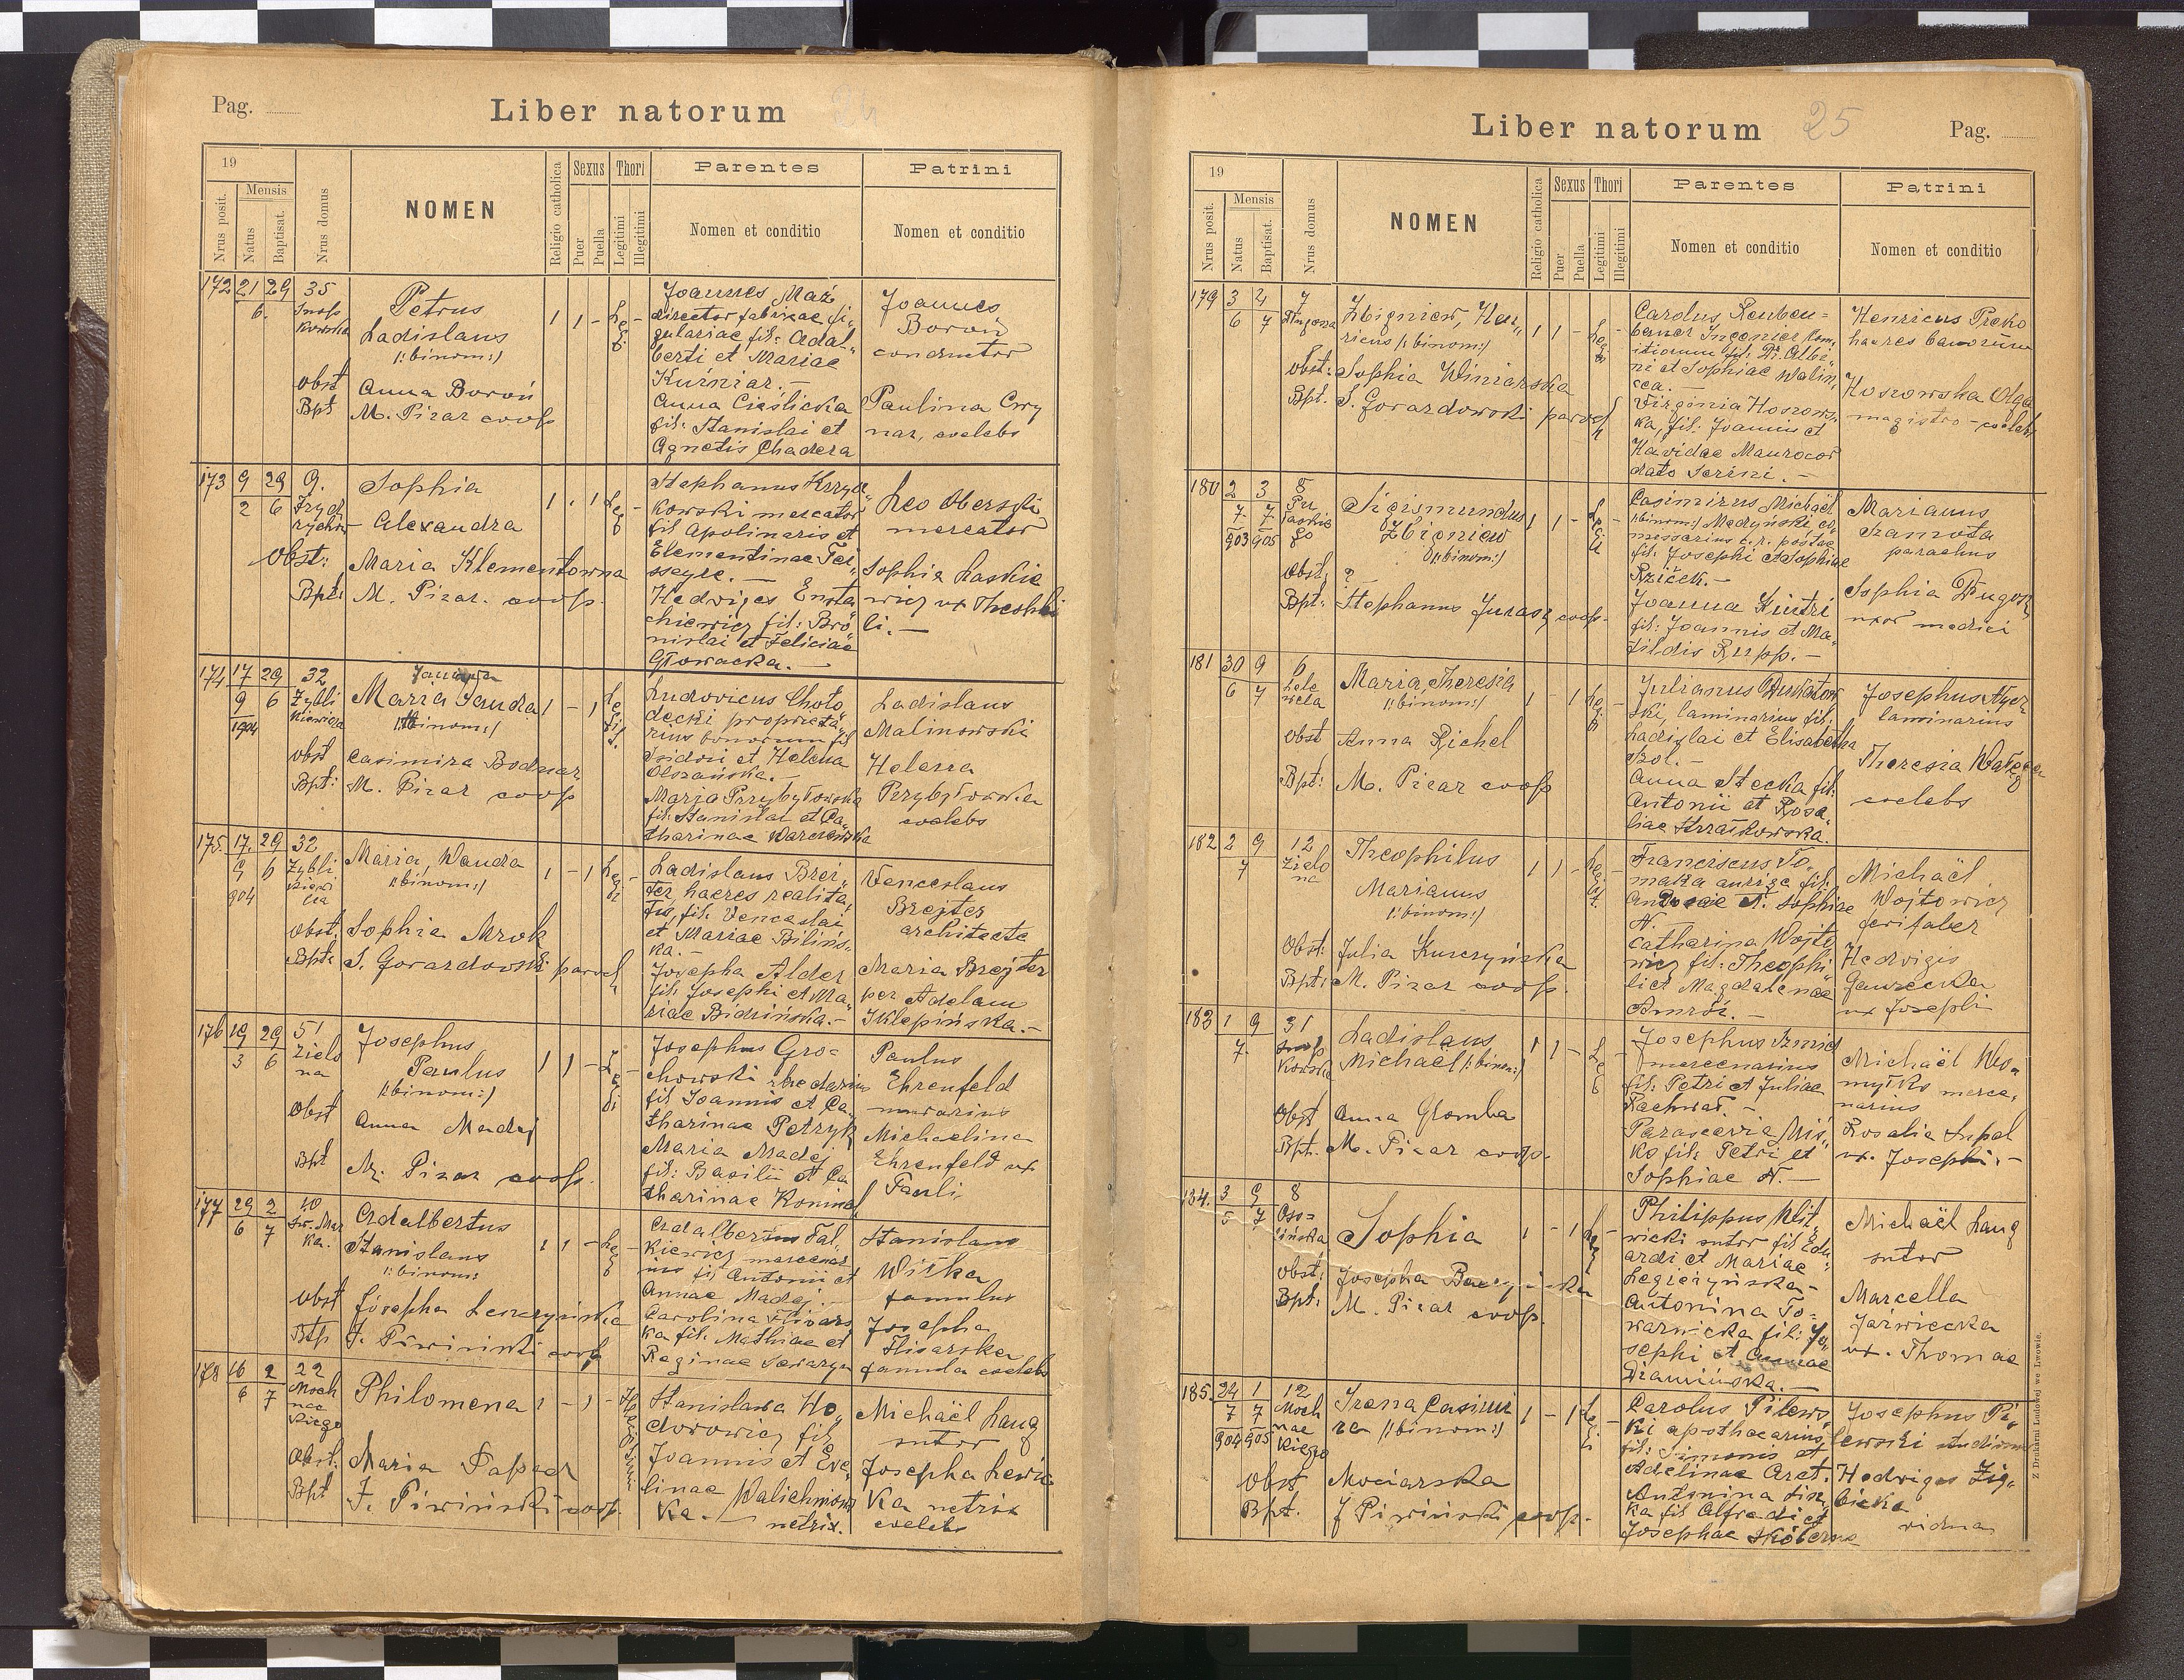 Pag.
Liber natorum
24
19
Nrus posit.
Mensis
Natus
Baptisat.
Nrus domus
NOMEN
Religio catholica
Sexus
Puer
Puella
Thori
Legitimi
Illegitimi
Parentes
Nomen et conditio
Patrini
Nomen et conditio
172 21 29 35
6.
Petrus
Ladislaus
/:binom:/
obst Anna Boroń
Bpt M. Pizar coop
1 1 -
Joannes Maź
director fabricae fi„
gulariae fil: Adal„
berti et Mariae
Kuźniar. —
Anna Cieślicka
fil: Stanislai et
Agnetis Chadera
Joannes
Boroń
conductor
Paulina Cwy
nar, coelebs
173 9 29 9.
2 6
Sophia
Alexandra
Obst: Maria Klementowna
Bpt: M. Pizar. coop.
Stephanus Krzyż„
kowski mercator
fil Apolinaris et
Clementinae Tei„
sseyre. —
Hedviges Eusta
chiewicz fil: Bro„
nislai et Feliciae
Głowacka. —
Leo Oberski
mercator
Sophia Laskie
wicz ux Theophi
li. —
174 17 29 32
9 6 Zybli
1904 kiewicza
Maria
/:binom:/
obst Casimira Bodnar
Bpt: M. Pizar coop
Ludovicus Choło
decki proprietá„
rius bonorum fil
Isidori et Helena
Olszańska. —
Maria Przybyłowska
fil: Stanislai et Ca„
tharinae
Ladislaus
Malinowski
Helena
Przybyłowska
coelebs
175. 17. 29 32
9 6 Zybli
904
Maria, Wanda
/:binom:/
obst. Sophia Mrok
Bpt: S. Gorazdowski paroch
Ladislaus Brej„
ter haeres realita„
tis, fil. Venceslai
et Mariae Bilińs„
ka. —
Josepha Alder
fil: Josephi et Ma„
riae Bidzińska. —
Venceslaus
Brejter
architecte
Maria Brejter
per Adelam
Sklepińska. —
176 19 29 51
3 6 Zielo
na
Josephus
Paulus
/:binom:/
obst Anna Madej
Bpt M. Pizar coop.
Josephus Gro=
chowski rhedarius
fil Joannis et Ca„
tharinae Petryk
Maria Madej
fil: Basilii et Ca
tharinae
Paulus
Ehrenfeld
murarius
Michaelina
Ehrenfeld ux
Pauli
177 29 2 10
6 7 Św. Mar
ka.
Adalbertus
Stanislaus
/:binom:
obst Josepha Leszczyńska
Btp J. Piwiński coop
Adalbertus Fal„
kiewicz mercena„
rius fil Antonii et
Annae Madej. —
Carolina Flisars
ka fil. Mathiae et
Reginae
Stanislaus
Wilka
famulus
Josepha
Flisarska
famula coelebs
178 16 2 22
6 7 Moch
nac
kiego
Philomena
Obst. Maria
Bpt J. Piwiński coop.
Illegitimi
Stanislawa Ho„
dorowicz fil
Joannis et Eve„
linae Walichnows
ka. — netrix.
Michaël Laug
sutor
Josepha Lewic
ka netrix
coelebs
Liber natorum
25
Pag.
19
Nrus posit.
Mensis
Natus
Baptisat.
Nrus domus
NOMEN
Religio catholica
Sexus
Puer
Puella
Thori
Legitimi
Illegitimi
Parentes
Nomen et conditio
Patrini
Nomen et conditio
179 3 2 7
6 7 Długosza
Zbigniew, Hen„
ricus /:binom:/
obst: Sophia Winiarska
Bpt. S. Gorazdowski paroch
Carolus
fil: Dr. Albi„
ni et Sophiae Walin„
cea. —
Virginia Hoszows„
ka, fil: Joannis et
Havidae Maurocor
dato Serini. —
Henricus Preko
haeres bonorum
Hoszowska Olga
magistra - coelebs
180 2 3 8
7 7
903 905
Sigismundus
Zbigniew
/:binom:/
obst. ?
Bpt: Stephanus Jurasz coop.
Casimirus Michaël
/:binom:/ Medyński co„
messarius c. r. postae
fil. Josephi et Sophiae
Rziček. —
Joanna Kustri
fil: Joannis et Ma„
tildis Rupp. —
Marianus
Szamota
parochus
Sophia Długosz
uxor medici
181 30 9 6
6 7 Lele
wela
Maria, Theresia
/:binom:/
obst Anna Richel
Bpt: M. Pizar coop
Julianus
ski, laminarius fil:
Ladislai et Elisabetha
Bol. —
Anna Stecka fil:
Antonii et Rosa„
liae Strzałkowska.
Josephus
laminarius
Theresia
coelebs
182 2 9 12
7 Zielo
na
Theophilus
Marianus
/:binom:/
Obst: Julia Kurczyńska
Bpt: M. Pizar coop.
Franciscus To„
maka auriga fil:
Sophiae
N.
Catharina Wojto„
wicz fil: Theophi„
li et Magdalenae
Amróz. —
Michaël
Wojtowicz
ferifaber
Hedvigis
Gawecka
ux Josephi
183 1 9 31
7.
Ladislaus
Michaël /:binom:/
obst Anna Glomba
Bpt. M. Pizar coop.
Josephus Szmid
mercenarius
fil: Petri et Juliae
Rachwał. —
Parascevia Mis„
ko fil: Petri et
Sophiae N. —
Michaël Cho„
myśko merce„
narius
Rosalia Supel
ux. Josephi. —
184. 3 9 8
5 7 Oso=
lińska
Sophia
obst: Josepha
Bpt: M. Pizar coop.
Philippus Klit„
wicki sutor fil Edu
ardi et Mariae
Legieżyńska —
Antonina To=
warnicka fil: Jo„
sephi et Annae
Dianińska. —
Michaël Laug
sutor
Marcella
Jarwiecka
ux. Thomae
185. 24 1 12
7 7 Moch
904 905 nac
kiego
Irena Casimi
ra /:binom:/
obst Mociarska
Bpt. J Piwiński coop.
Carolus Pilews„
ki apothecarius
fil: Simonis et
Adelinae Aret.
Antonina
ka fil Alfredi et
Josephae
Josephus Pi„
lewski
Hedviges Zię„
bicka
vidua
Z Drukarni Ludowej we Lwowie.